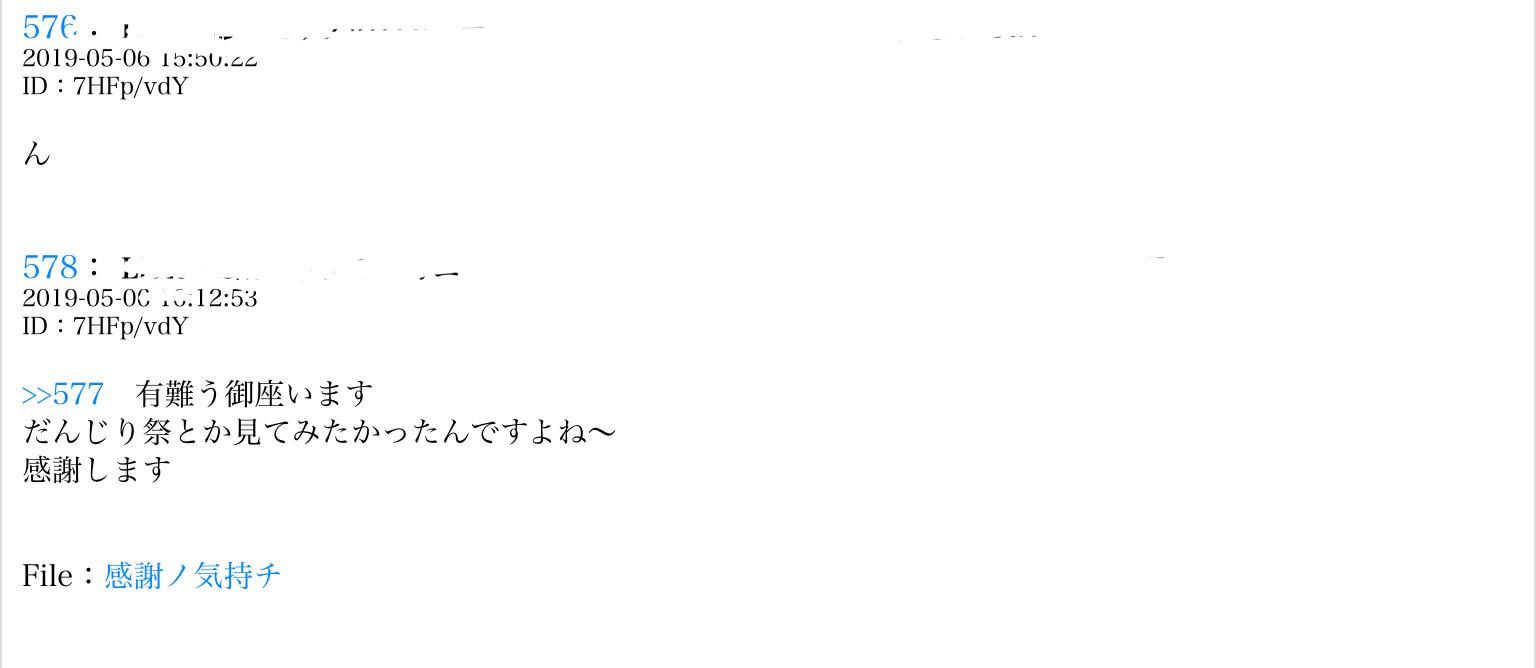 576：
2019-05-06 15:50:22
ID：7HFp/vdY
ん
578：
2019-05-06 16:12:53
ID：7HFp/vdY
>>577　有難う御座います
だんじり祭とか見てみたかったんですよね〜
感謝します
File：感謝ノ気持チ